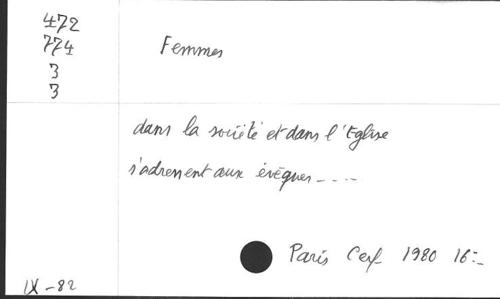 472
774
3
3
Femmes
dans la société et dans l'Eglise
s'adressent aux évêques -- . --
Paris Cerf 1980 16:-
IX - 82